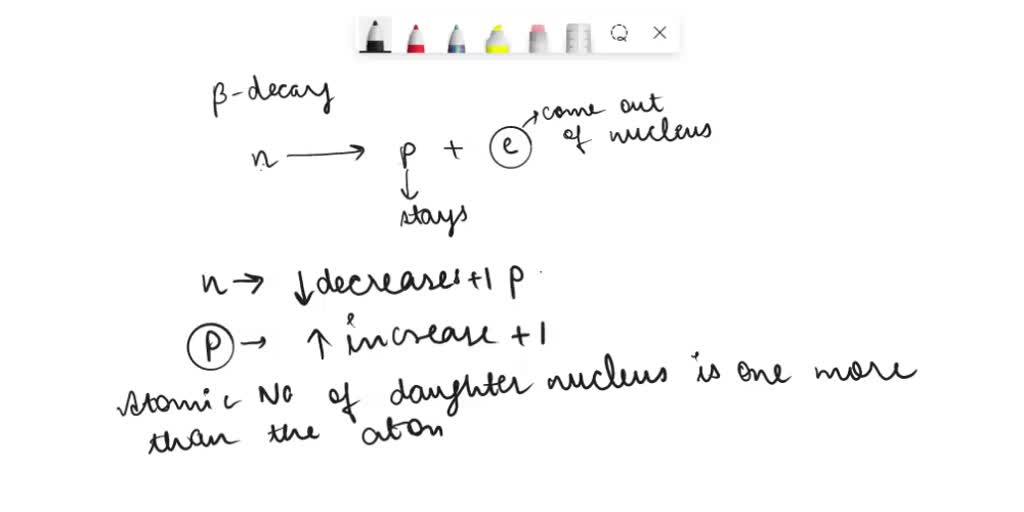 β-decay
n → p + e → come out
of nucleus
↓
stays
n → ↓ decreases +1 p
P → ↑ increase +1
Atomic No of daughter nucleus is one more
than the atom